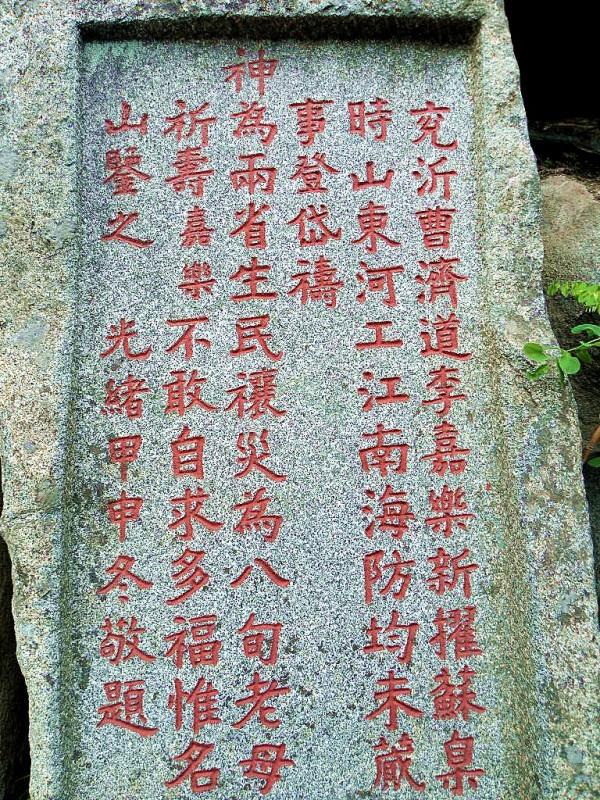 兖沂曹濟道李嘉樂新擢蘇臬
時山東河工江南海防均未蕆
事登岱禱
神為兩省生民禳災為八旬老母
祈壽嘉樂不敢自求多福惟名
山鑒之 光緒甲申冬敬題